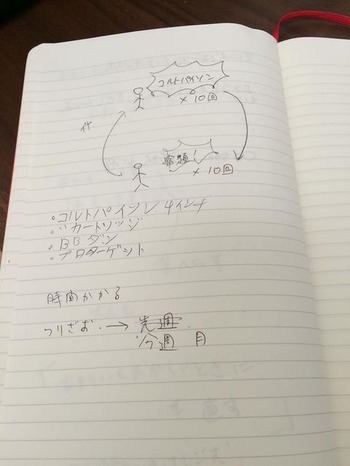 コルトパイソン
×10回
×10回
・コルトパイソン 4インチ
・〃カートリッジ
・BBダン
・プロターゲット
時間かかる
つりざお → 先週
今週 月